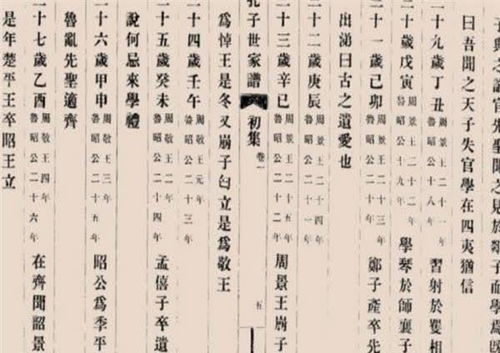 曰吾聞之天子失官學在四夷猶信
二十九歲丁丑周景王二十一年魯昭公十八年習射於矍相
二十歲戊寅周景王二十二年魯昭公十九年學琴於師襄子
二十一歲己卯周景王二十三年魯昭公二十年鄭子產卒先
出涕曰古之遺愛也
二十二歲庚辰周景王二十四年魯昭公二十一年
二十三歲辛巳周景王二十五年魯昭公二十二年周景王崩子
孔子世家譜 初集 卷一 五
爲悼王是冬又崩子匄立是爲敬王
二十四歲壬午周敬王元年魯昭公二十三年
二十五歲癸未周敬王二年魯昭公二十四年孟僖子卒遺
說何忌來學禮
二十六歲甲申周敬王三年魯昭公二十五年昭公爲季平
魯亂先聖適齊
二十七歲乙酉周敬王四年魯昭公二十六年在齊聞韶景
是年楚平王卒昭王立